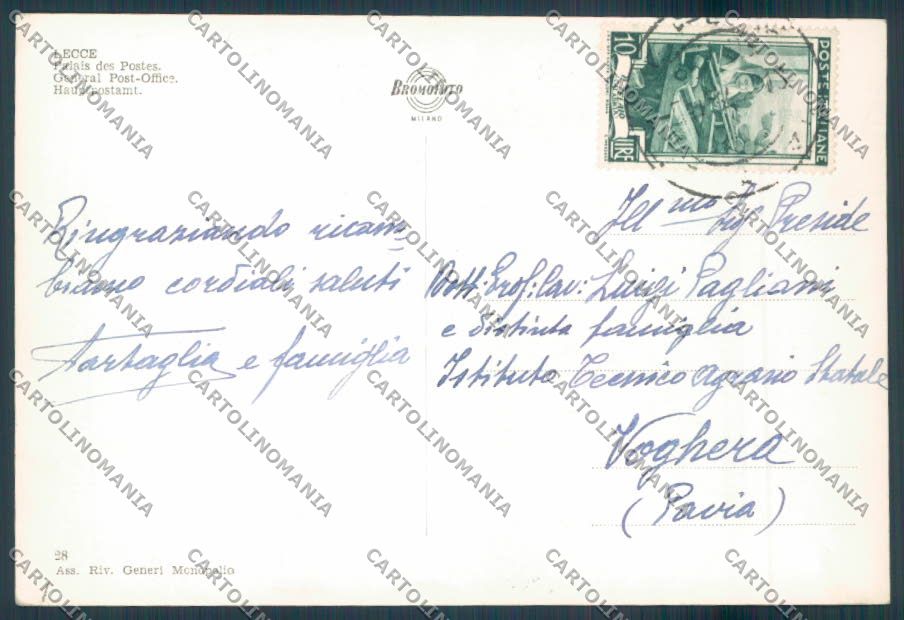 LECCE
Palais des Postes.
General Post-Office.
Hauptpostamt.
BROMOFOTO
MILANO
10 LIRE
POSTE ITALIANE
Ringraziando ricam-
biamo cordiali saluti
Tartaglia e famiglia
Ill mo Sig Preside
Dott: Prof: Cav: Luigi Pagliani
e distinta famiglia
Istituto Tecnico Agrario Statale
Voghera
(Pavia)
28
Ass. Riv. Generi Monopolio
CARTOLINOMANIA